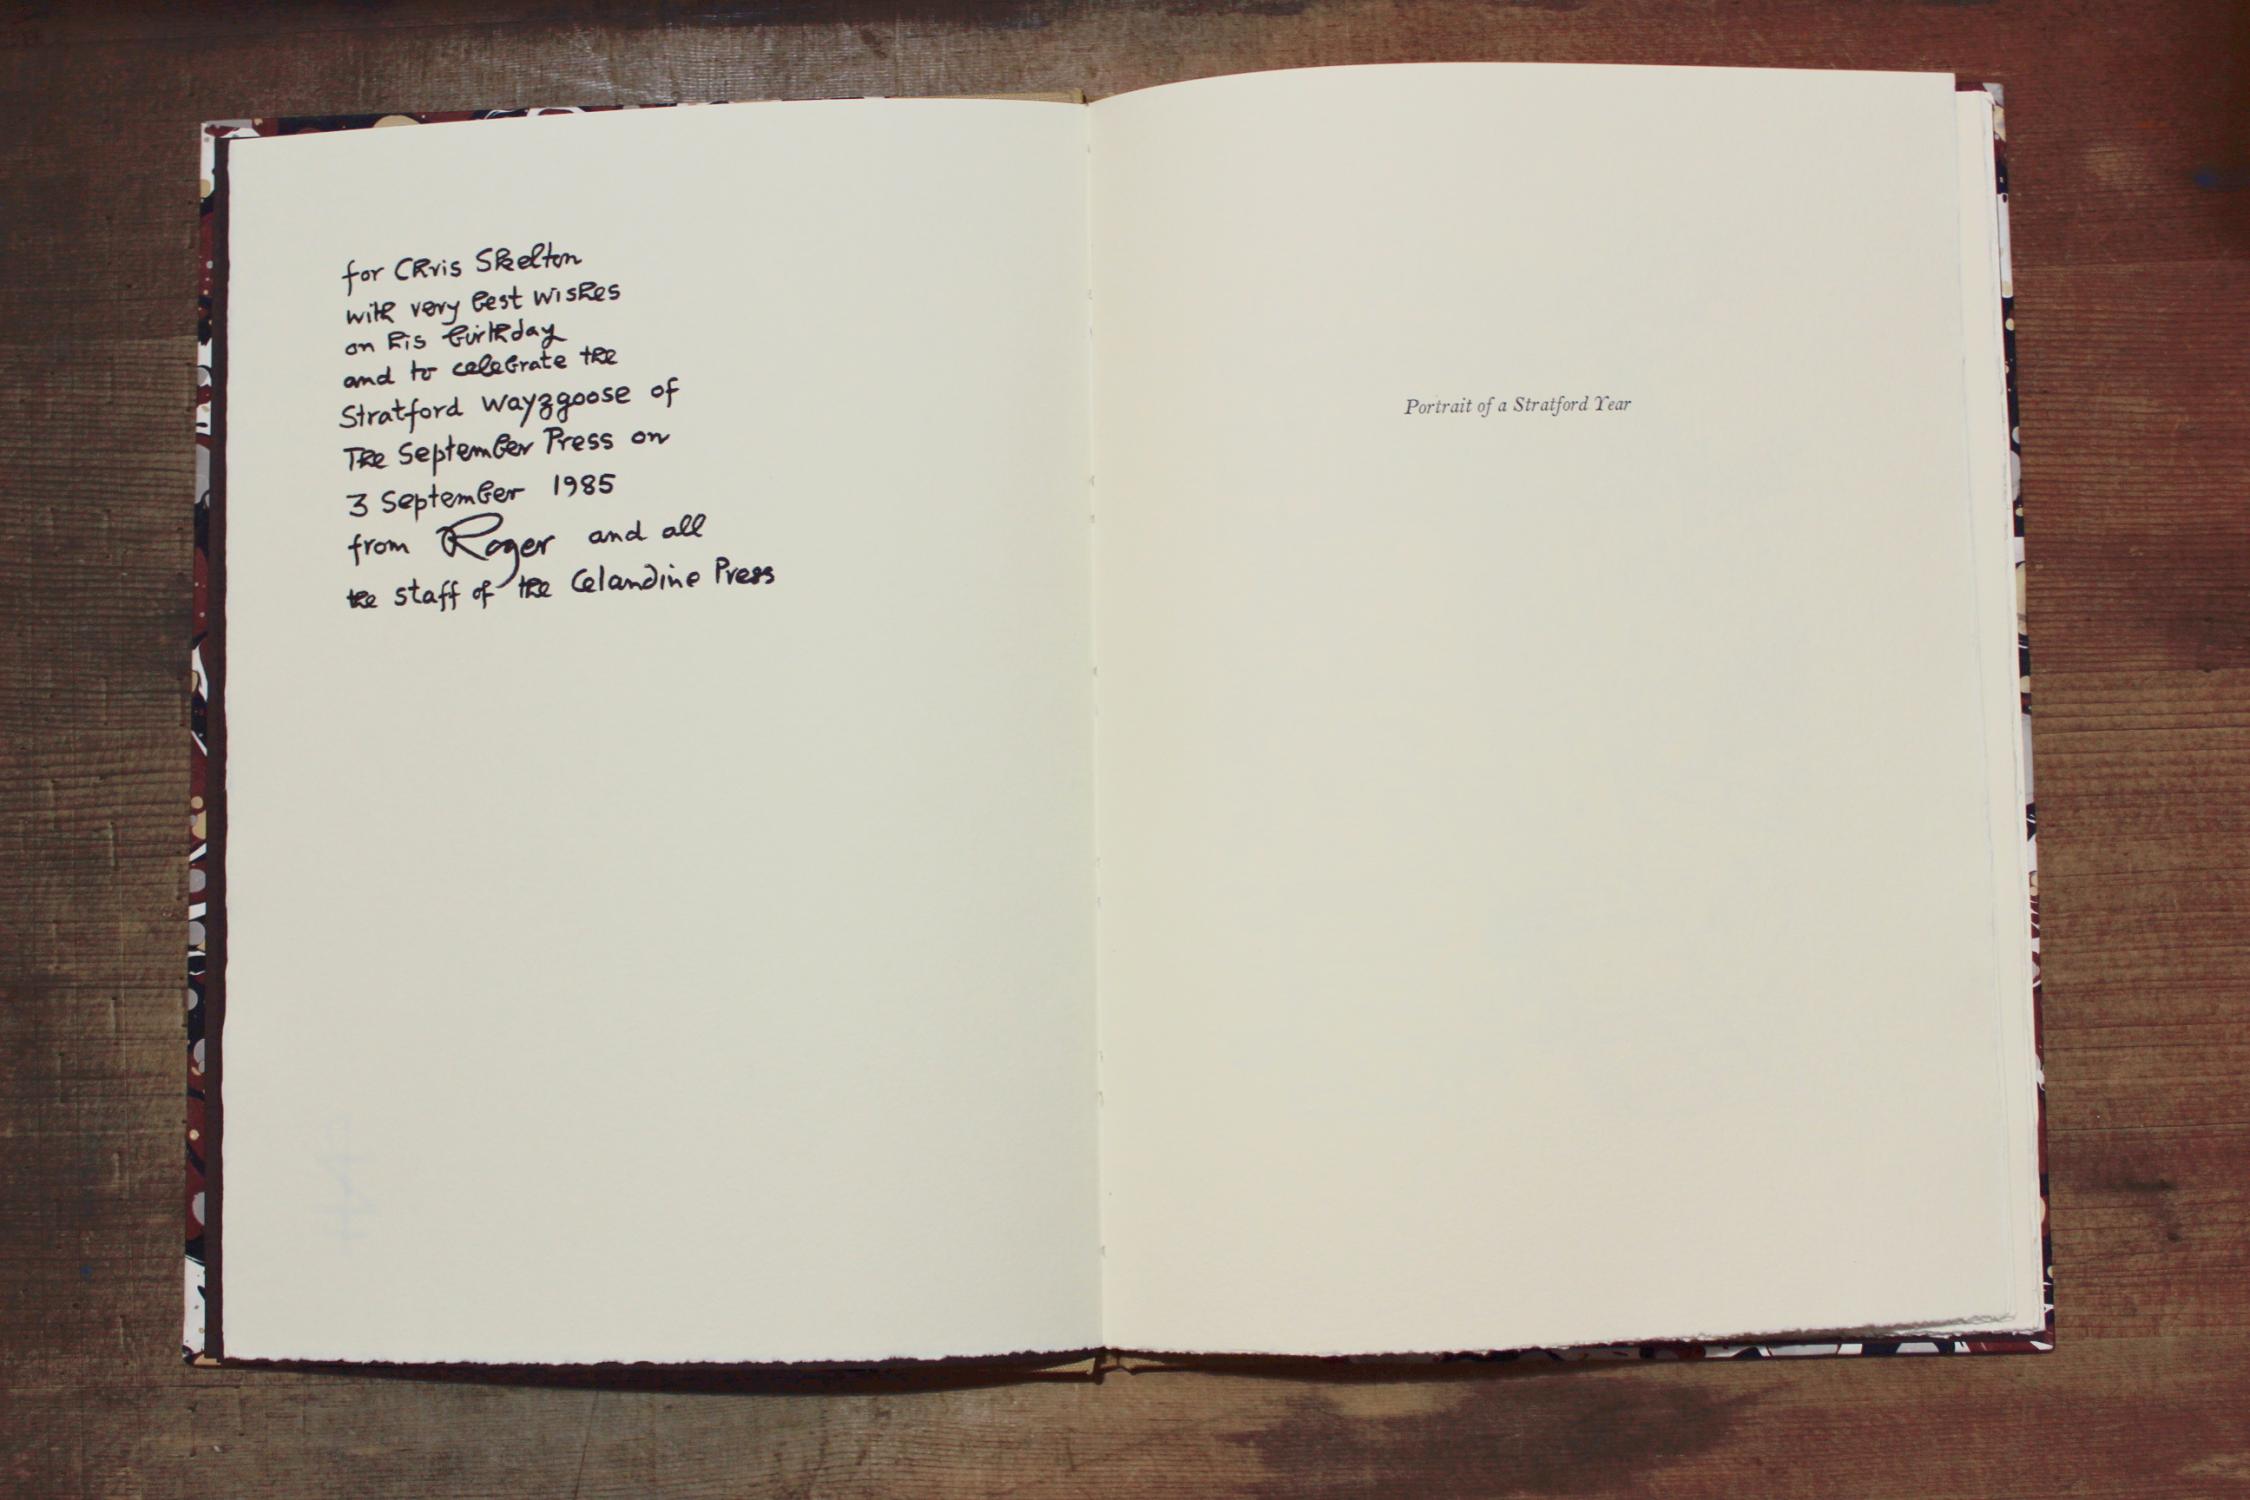 for Chris Skelton
with very best wishes
on his birthday
and to celebrate the
Stratford Wayzgoose of
The September Press on
3 September 1985
from Roger and all
the staff of the Celandine Press
Portrait of a Stratford Year